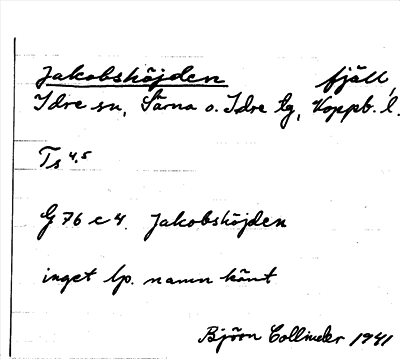 Jakobshöjden fjäll,
Idre sn, Särna o. Idre tg, Koppb. l.
Ts 4,5
G 76 c 4. Jakobshöjden
inget lp. namn känt
Björn Collinder 1941